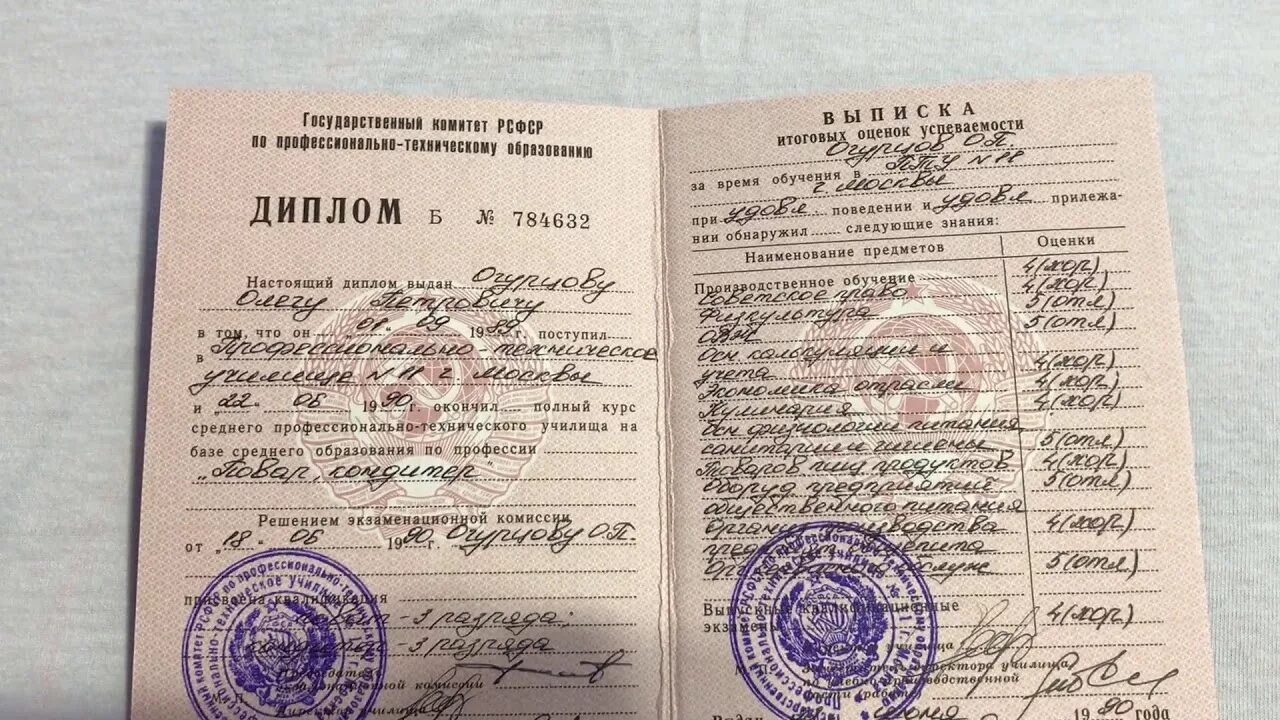 Государственный комитет РСФСР
по профессионально-техническому образованию
ДИПЛОМ Б № 784632
Настоящий диплом выдан Огурцову
Олегу Петровичу
в том, что он 01 09 1989 г. поступил
в Профессионально-техническое
училище г. Москвы
и 22 06 1990 г. окончил полный курс
среднего профессионально-технического училища на
базе среднего образования по профессии
"Повар, кондитер"
Решением экзаменационной комиссии
от "18" 06 1990 г. Огурцову О.П.
присвоена квалификация
повар - 3 разряда;
кондитер - 3 разряда
Председатель
экзаменационной комиссии
Директор училища
ВЫПИСКА
итоговых оценок успеваемости
Огурцов О.П.
за время обучения в ПТУ
г. Москвы
при удовл поведении и удовл прилежа-
нии обнаружил следующие знания:
Наименование предметов Оценки
Производственное обучение 4 (хор)
Советское право 4 (хор)
Физкультура 5 (отл)
5 (отл)
осн калькуляции и
учета 4 (хор)
Экономика отрасли 4 (хор)
Кулинария 4 (хор)
осн физиологии питания
санитарии и гигиены 5 (отл)
Товаров пищ продуктов 4 (хор)
Оборуд предприятий 5 (отл)
общественного питания
производства 4 (хор)
общепита
5 (отл)
Выпускные квалификационные
экзамены 4 (хор)
училища
Заместитель директора училища
по учебно-производственной
работе
Выдан июня 1990 года